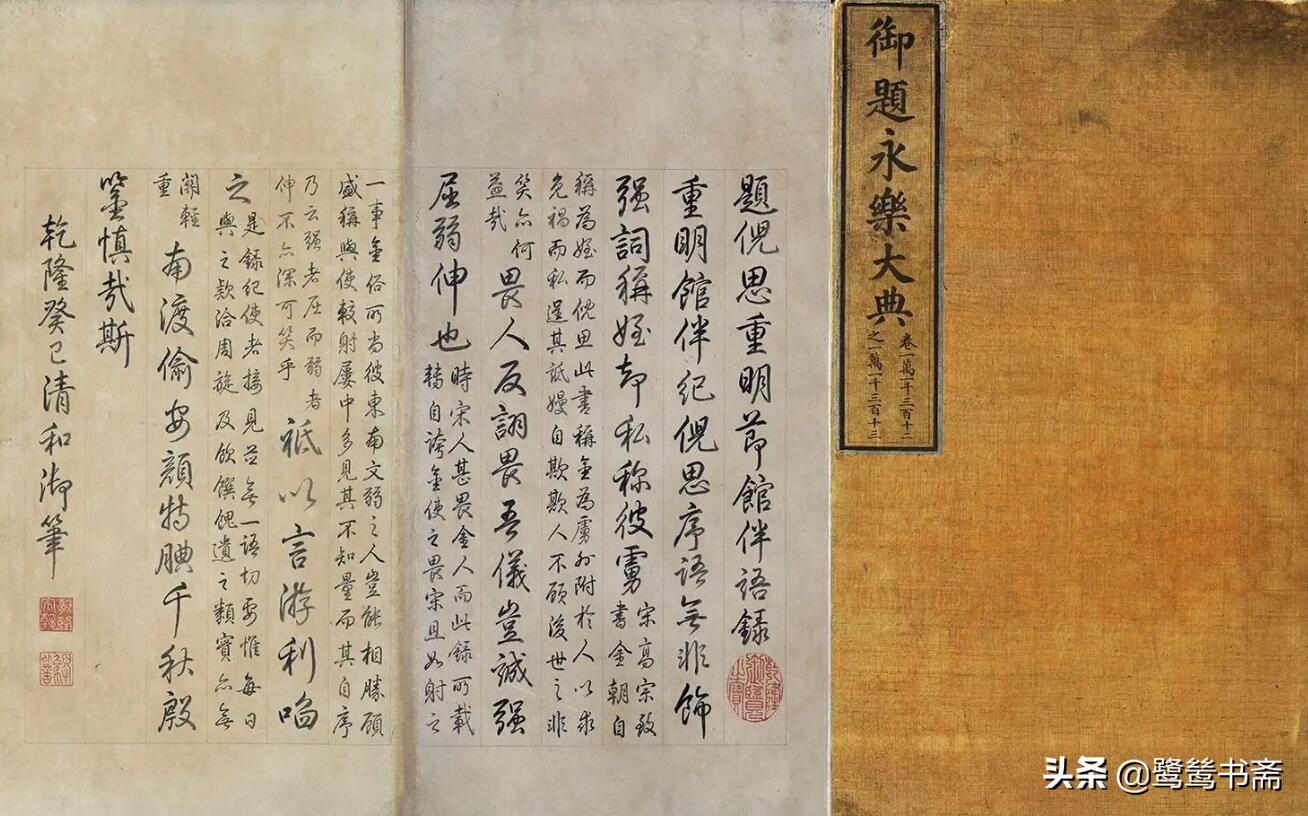 御題永樂大典
卷一萬一千三百十二
之一萬一千三百十三
題倪思重明節館伴語録
乾隆御覽之寶
重明館伴紀倪思序語無非飾
强詞稱姪却私称彼虜
宋高宗致
書金朝自
稱為姪而倪思此書稱金為虜外附於人以求
免禍而私逞其詆嫚自欺欺人不顧後世之非
笑亦何
益哉
畏人反詡畏吾儀豈誠强
屈弱伸也
時宋人甚畏金人而此録所載
轉自誇金使之畏宋且如射之
一事金俗所尚彼東南文弱之人豈能相勝顧
盛稱與使較射屢中多見其不知量而其自序
乃云强者屈而弱者
伸不亦深可笑乎
祗以言游利啗
之
是録紀使者接見並無一語切要惟每日
與之款洽周旋及飲饌餽遺之類實亦無
關輕
重
南渡偷安顔特腆千秋殷
鑒慎哉斯
乾隆癸巳清和御筆
头条 @鹭鸶书斋